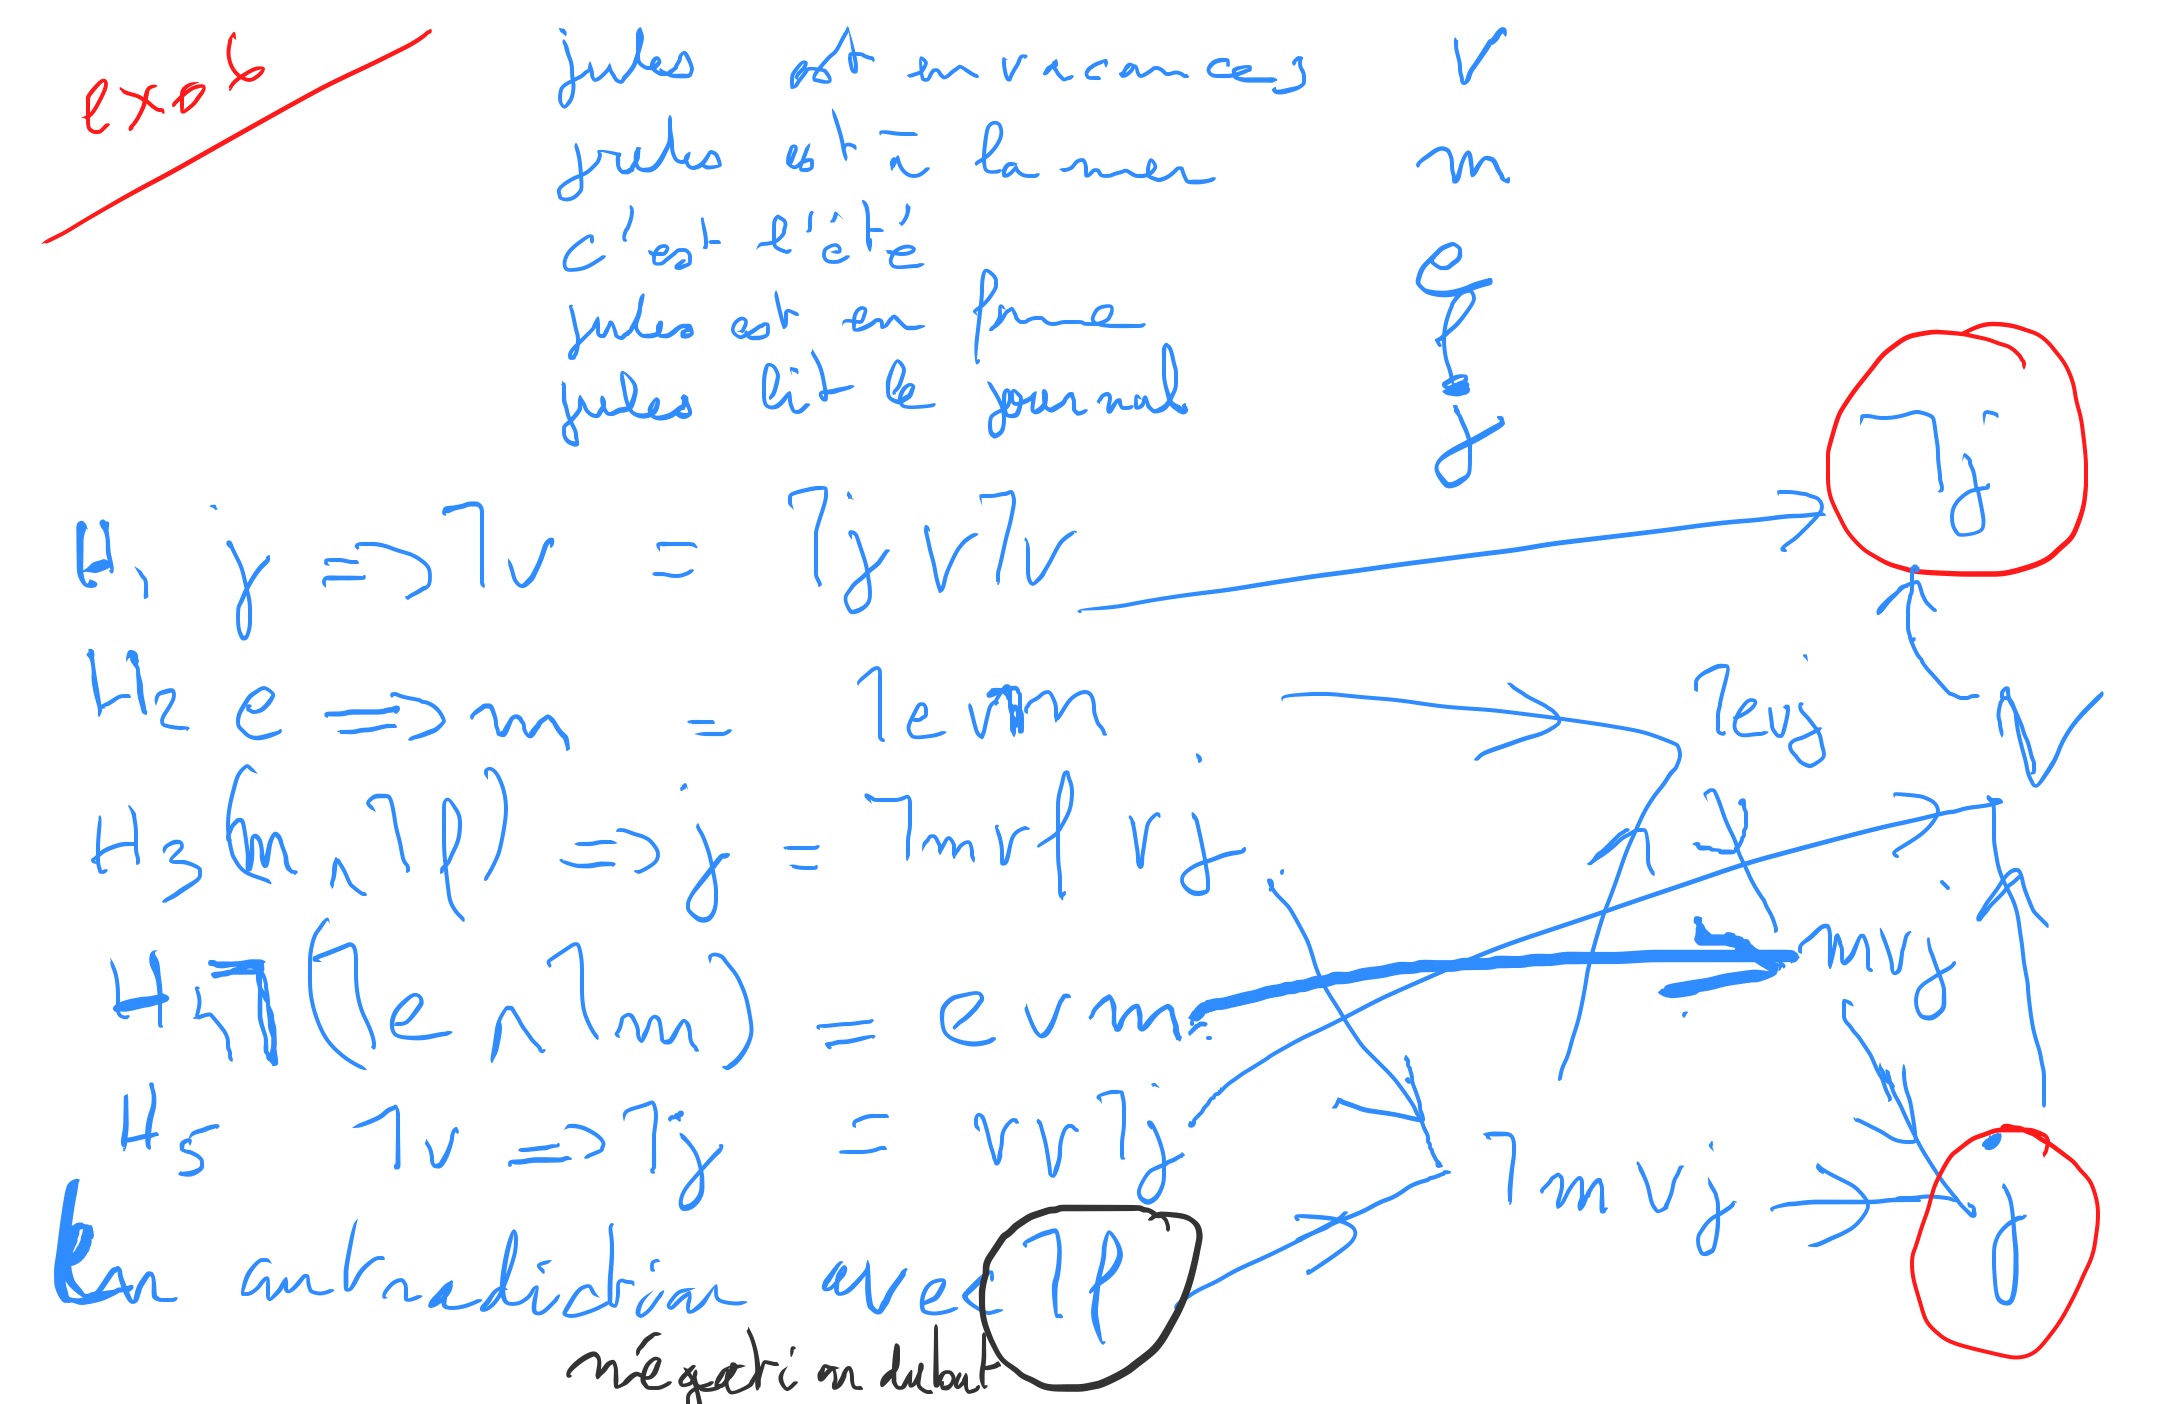 exo 6
jules est en vacances V
jules est à la mer m
c'est l'été e
jules est en forme f
jules lit le journal j
H1 j => ¬v = ¬j ∨ ¬v ¬j
H2 e => m = ¬e ∨ m ¬e ∨ j v
H3 (m ∧ ¬f) => j = ¬m ∨ f ∨ j
m ∨ j
H4 ¬(¬e ∧ ¬m) = e ∨ m
H5 ¬v => ¬j = v ∨ ¬j ¬m ∨ j j
En contradiction avec ¬f
négation du but